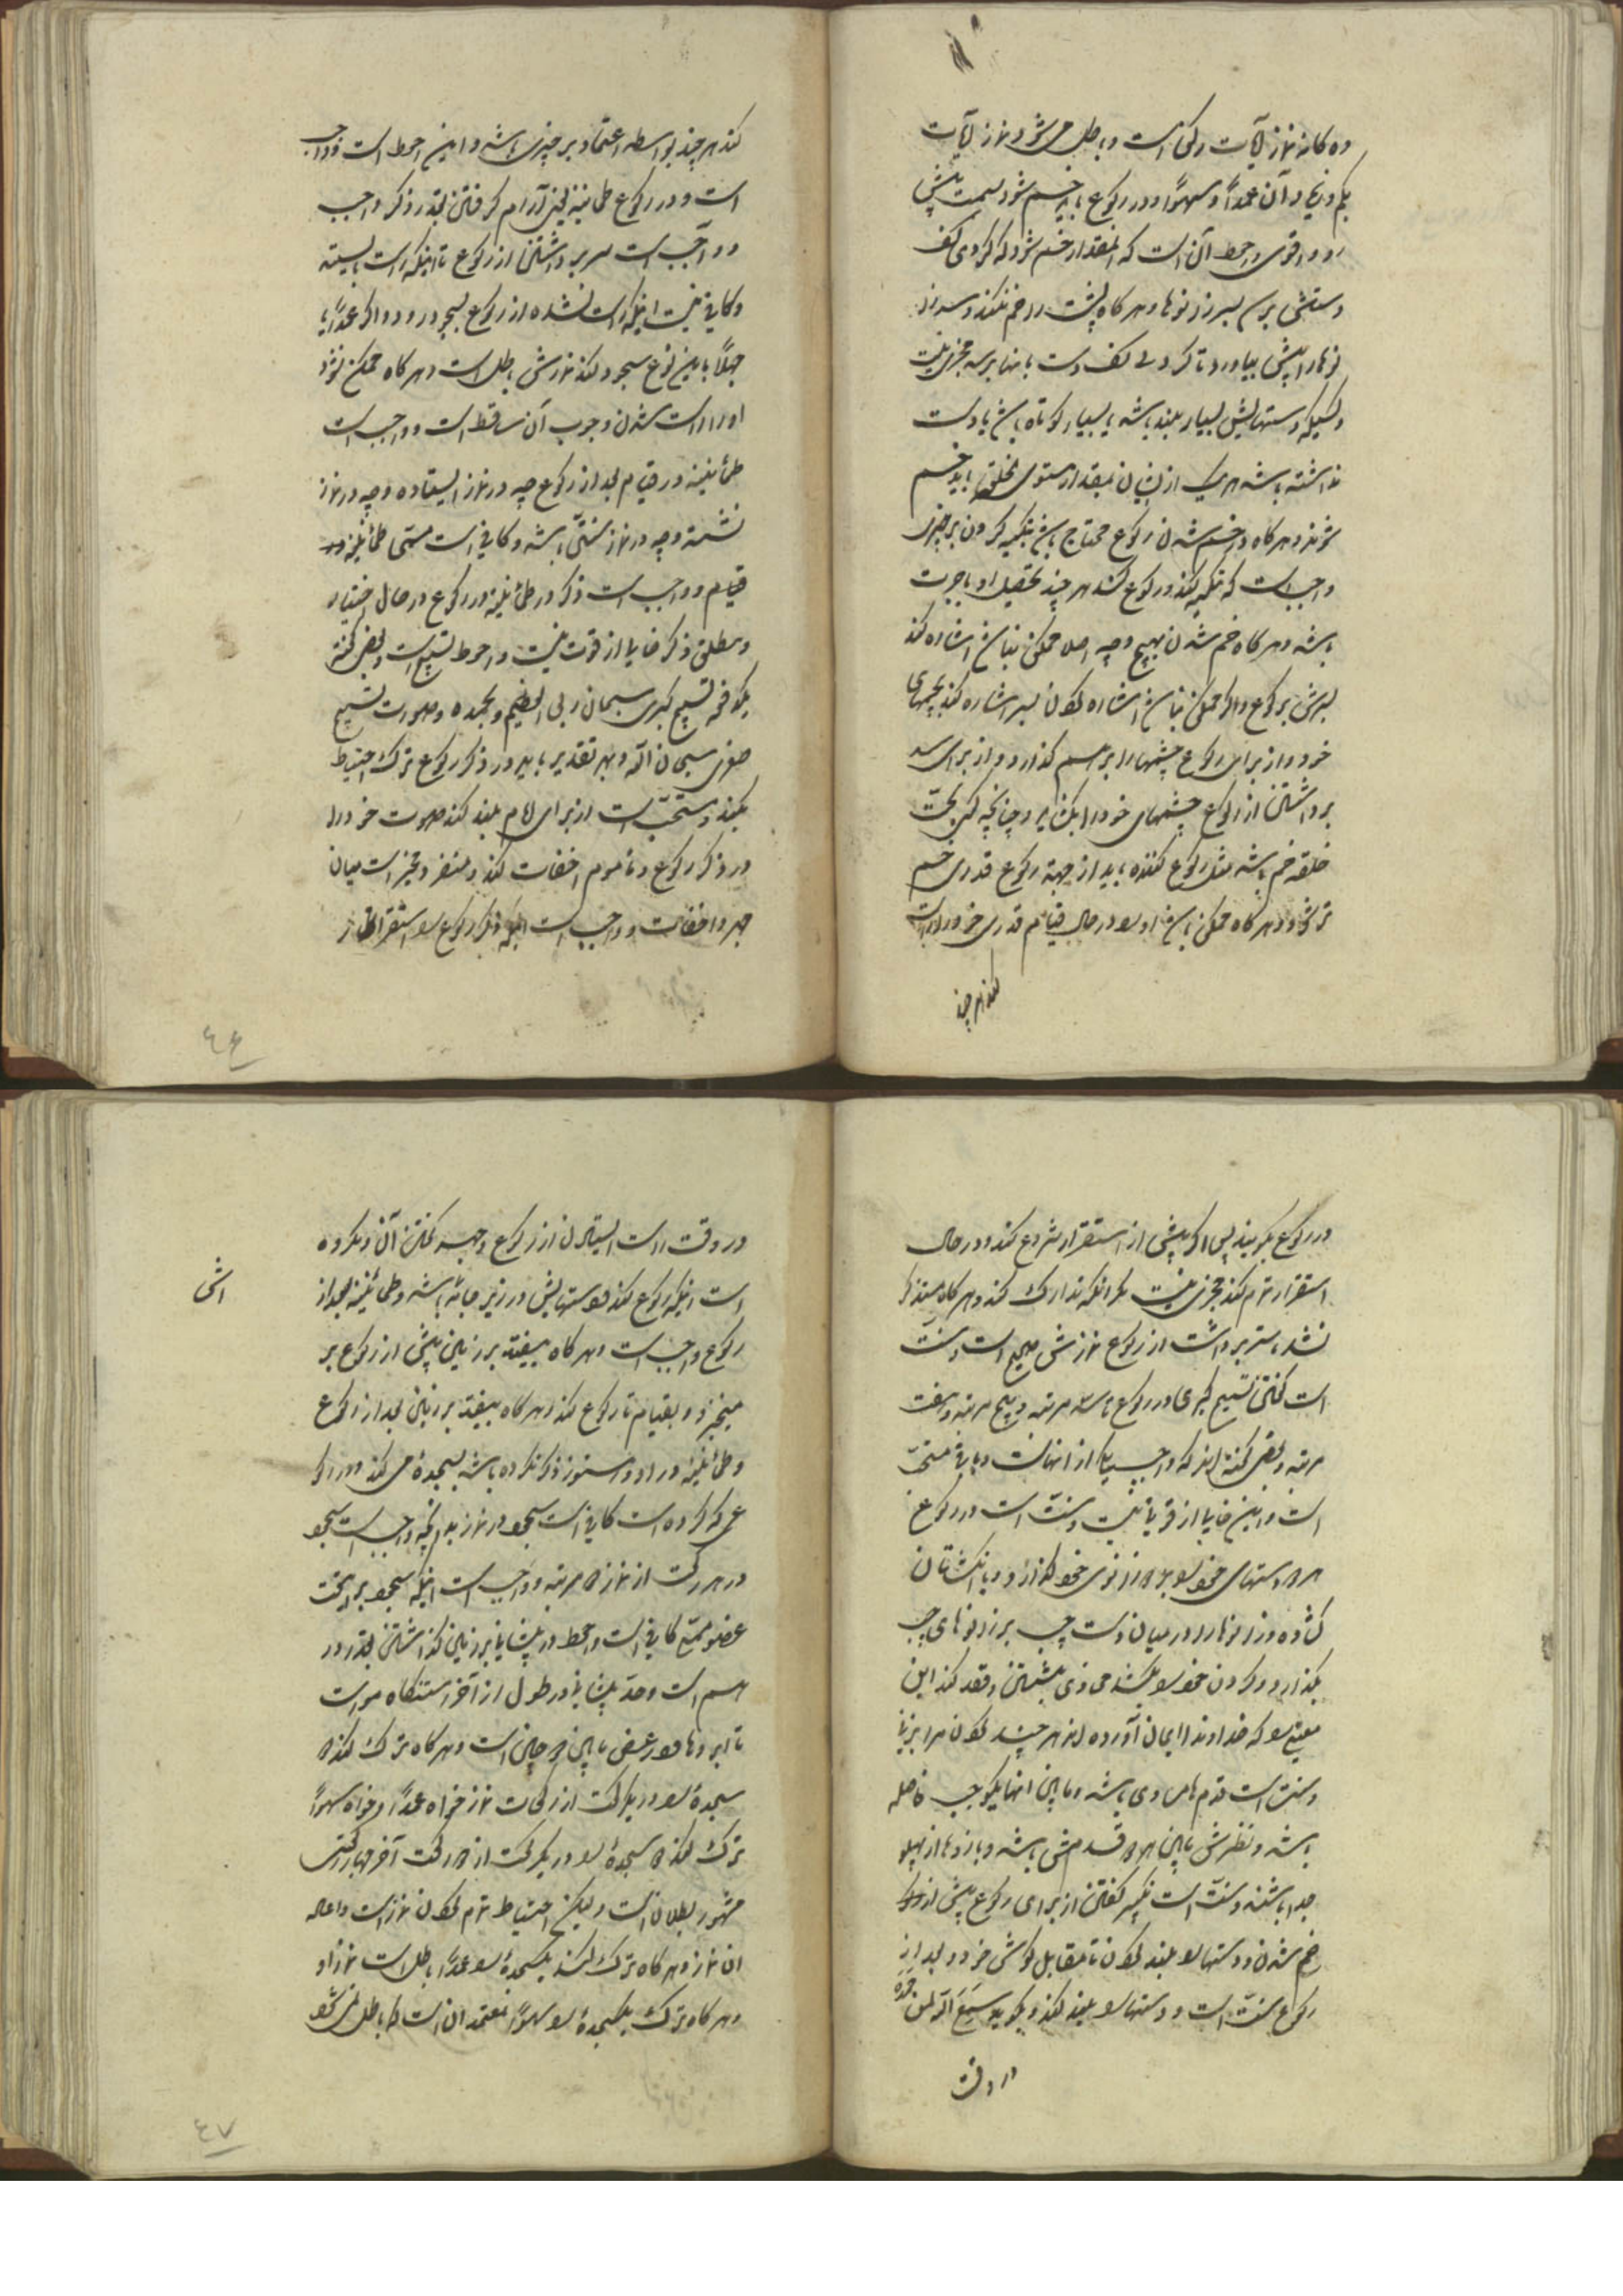 ده کانه نماز آیات رکن است و باطل می شود نماز آیات
بکم و زیاد آن عمداً و سهواً و در رکوع باید خم شود بسمت پیش
رو و اقوی و احوط آن است که انقدر خم شود که گودی کف
دستش برسد بسر زانوها و هرگاه پشت را خم نکند و سر زا
نوها را پیش بیاورد تا گودی کف دست بانها برسد مجزی نیست
و کسیکه دستهایش بسیار بلند باشد یا بسیار کوتاه باشد یا دست
نداشته باشد هر یک از ایشان بمقدار مستوی الخلقه باید خم
شوند و هرگاه در خم شدن رکوع محتاج باشد بتکیه کردن بر چیزی
واجب است که تکیه بکند و رکوع کند هر چند تحصیل او باجرت
باشد و هرگاه خم شدن بهیچ وجه اصلا ممکن نباشد اشاره کند
بسرش برکوع و اگر ممکن نباشد اشاره کردن بسر اشاره کند بچشمهای
خود و از برای رکوع چشمها را بر هم گذارد و از برای سر
برداشتن از رکوع چشمهای خود را بکشاید و چنانچه کسی بحسب
خلقه خم باشد مثل رکوع کننده باید از جهة رکوع قدری خم
تر شود و هرگاه ممکن باشد او را در حال قیام قدری خود را راست
کند هر چند
کند هر چند بواسطه اعتماد بر چیزی باشد و این احوط است و واجب
است در رکوع طمانینه یعنی آرام گرفتن بقدر ذکر واجب
و واجب است سر برداشتن از رکوع تا اینکه راست بایستد
و کافی نیست اینکه راست نشده از رکوع بسجود رود و اگر عمداً یا
جهلاً باین نوع سجود کند نمازش باطل است و هرگاه ممکن نشود
او را راست شدن وجوب آن ساقط است و واجب است
طمأنینه در قیام بعد از رکوع چه در نماز ایستاده و چه در نماز
نشسته و چه در نماز سنتی باشد و کافی است مسمی طمأنینه در
قیام و واجب است ذکر در طمأنینه در رکوع در حال اختیار
و مطلق ذکر خالی از قوت نیست و احوط تسبیح است و بعضی گفته
یکدفعه تسبیح کبری سبحان ربی العظیم و بحمده و صورت تسبیح
صغری سبحان الله و بهر تقدیر باید در ذکر رکوع ترک احتیاط
نکند و مستحب است از برای امام بلند کند صوت خود را
در ذکر رکوع و مأموم اخفات کند و منفرد مخیر است میان
جهر و اخفات و واجب است اینکه ذکر رکوع را در استقرار
٤٦
در رکوع بگوید پس اگر پیش از استقرار شروع کند و در حال
استقرار تمام کند مجزی نیست مگر آنکه تدارک کند و هرگاه متذکر
نشد تا سر برداشت از رکوع نمازش صحیح است و سنت
است گفتن تسبیح کبری در رکوع تا سه مرتبه و پنج مرتبه و هفت
مرتبه و بعضی گفته اند که واجب یکی از انهاست و باقی مستحب
است و این خالی از قربی نیست و سنت است در رکوع
هر دو دستهای خود را بر دو زانوی خود گذارد و با انکشتان
کشاده و زانوها را در میان دست چپ بر زانوهای چپ
بگذارد و گردن خود را بکشد محاذی پشتش و قصد کند این
معنی را که خداوندا ایمان آورده ام هر چند گردن مرا بزنی
و سنت است قدم ها مساوی باشد و مابین انها یکوجب فاصله
باشد و نظرش مابین هر دو قدمش باشد و بازوها از پهلو
جدا باشند و سنت است تکبیر گفتن از برای رکوع پیش از
خم شدن و دستها را بلند کردن تا مقابل گوش خود و بعد از
رکوع سنت است و دستها را بلند کند و بگوید سمع الله لمن حمده
در وقت
در وقت راست ایستادن از رکوع و جهة گفتن آن و مکروه
است اینکه رکوع کند و دستهایش در زیر جامه باشد و طمأنینه بعد از
رکوع واجب است و هرگاه بیفتد بر زمین پیش از رکوع بر
میخیزد و بقیام تا رکوع کند و هرگاه بیفتد بر زمین بعد از رکوع
و طمأنینه در او و هنوز ذکر نکرده باشد بسجده می کند و در رکو
عی که کرده است کافی است سجود در نماز بدانکه واجب است سجود
در هر رکعت از نماز دو مرتبه و واجب است اینکه سجود بر هفت
عضو مسمی کافی است و احوط در پیشانی بر زمین گذاشتن بقدر در
هم است و حد پیشانی در طول از آخر رستنگاه مو است
تا ابروها و در عرض مابین دو جبین است و هرگاه ترک کند دو
سجده را در یک رکعت از رکعات نماز خواه عمداً و خواه سهواً
ترک کند دو سجده را در یک رکعت از دو رکعت آخر چهار رکعتی
مشهور بطلان است و لیکن احتیاط تمام کردن نماز است و اعاده
ان نماز و هرگاه ترک کند یکسجده را عمداً باطل است نماز او
و هرگاه ترک یکسجده را سهواً معتمد ان است که باطل نمی شود
٤٧